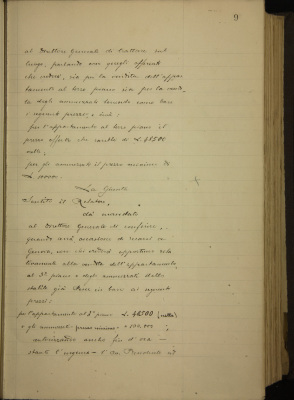 9
al Direttore Generale di trattare sul
luogo, parlando con quegli offerenti
che crederà, sia per la vendita dell'appar
tamento al terzo piano sia per la vendi
ta degli ammezzati tenendo come base
i seguenti prezzi, e cioè:
per l'appartamento al terzo piano il
prezzo offerto che sarebbe di L. 48500
nette,
per gli ammezzati il prezzo minimo di
L.
La Giunta
Sentito il Relatore,
dà mandato
al Direttore Generale di
quando avrà occasione di recarsi a
Genova, con chi crederà opportuno rela
tivamente alla vendita dell'appartamento
al 3º piano e degli ammezzati dello
stabile già in base ai seguenti
prezzi:
per l'appartamento al 3º piano L. 48500 (nette)
e gli ammezzati
autorizzando anche fin d'ora
stante l'urgenza - l'On. Presidente ad